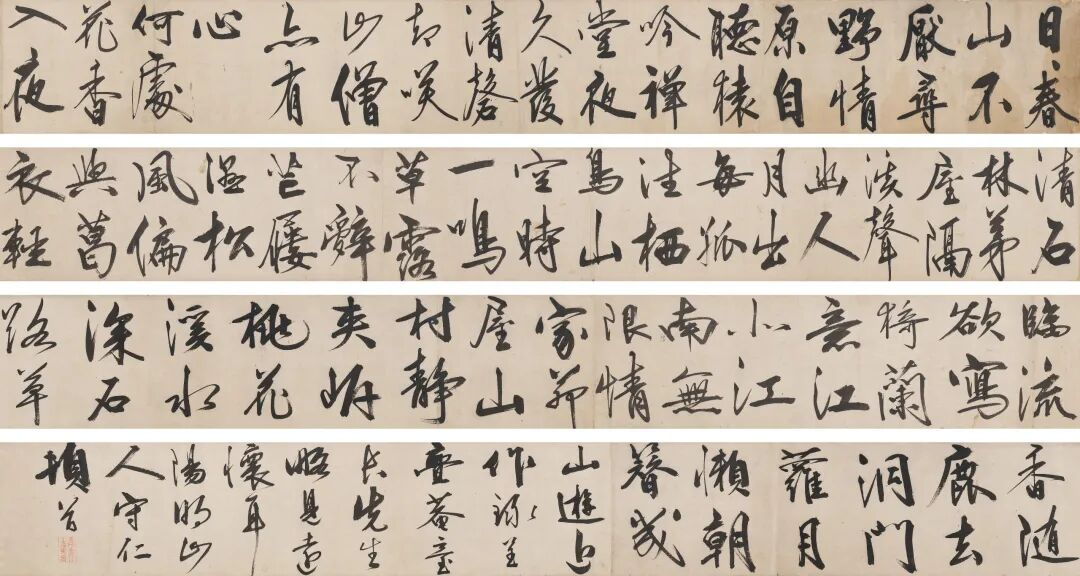 日日春
山不
厭尋
野情
原自
聽猿
吟禅
堂夜
久發
清磬
却咲
山僧
亦有
心
何處
花香
入夜
清石
林茅
屋隔
淡聲
幽人
月出
每孤
往栖
鳥山
空時
一鳴
草露
不辭
芒屨
濕松
風偏
與葛
衣輕
臨流
欲寫
猗蘭
意江
北江
南無
限情
家茆
屋山
村靜
夾岸
桃花
溪水
深石
路草
香隨
鹿去
洞門
蘿月
懶朝
簪幾
山遊近
作錄呈
菴臺
長先生
略見遠
懷耳
陽明山
人守仁
頓首